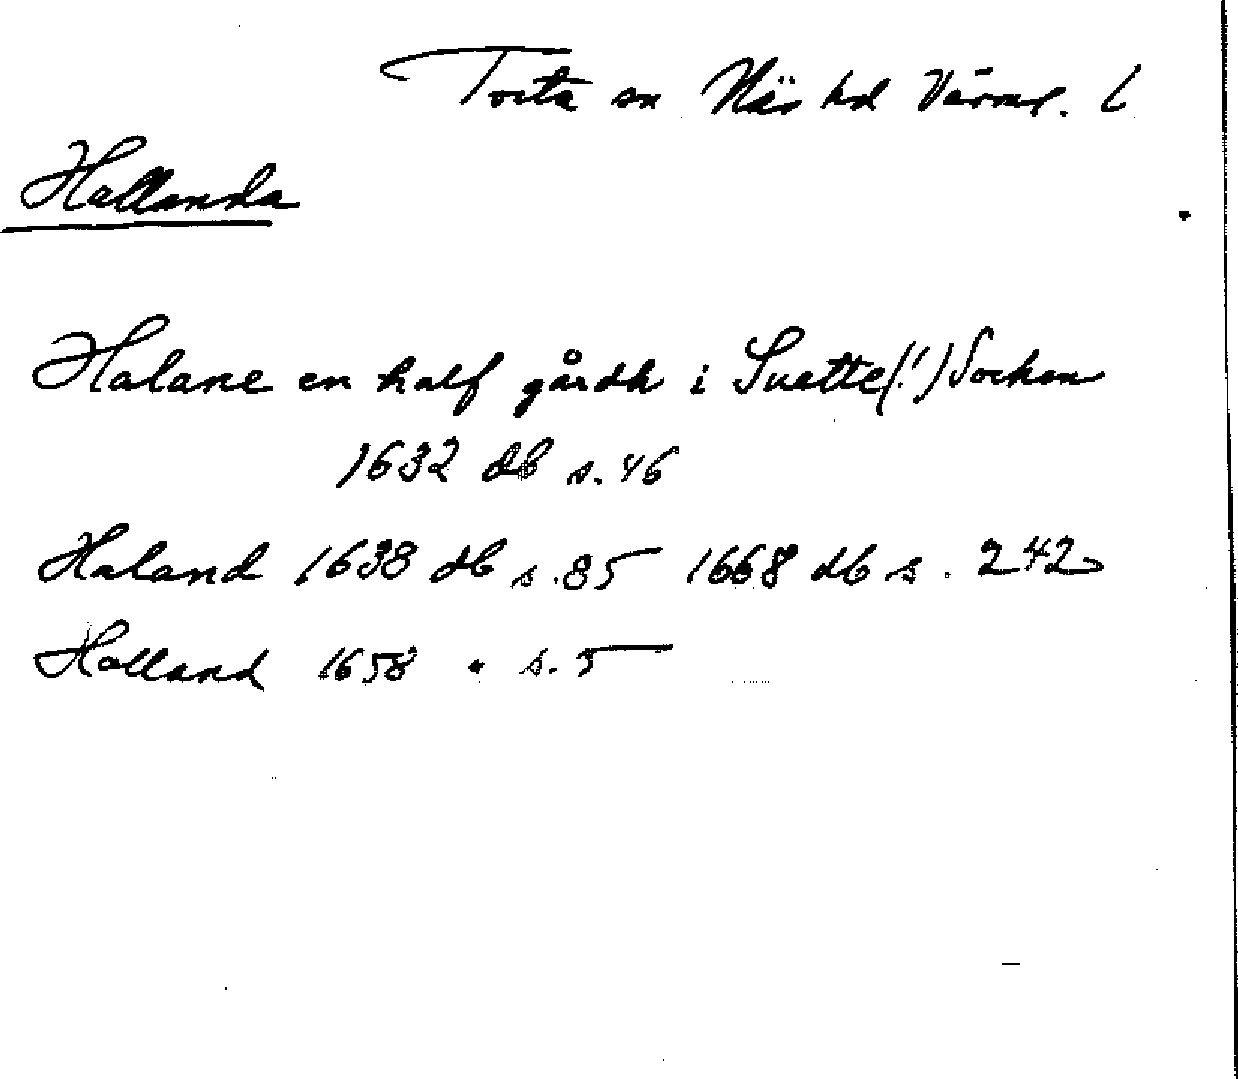 Torta sn Näs hd Värml. L
Hallanda
Halane en half gårdh i Suette(!) Sochen
1632 db s. 46
Haland 1638 db s. 85 1668 db s. 242
Halland 1658 " s. 5